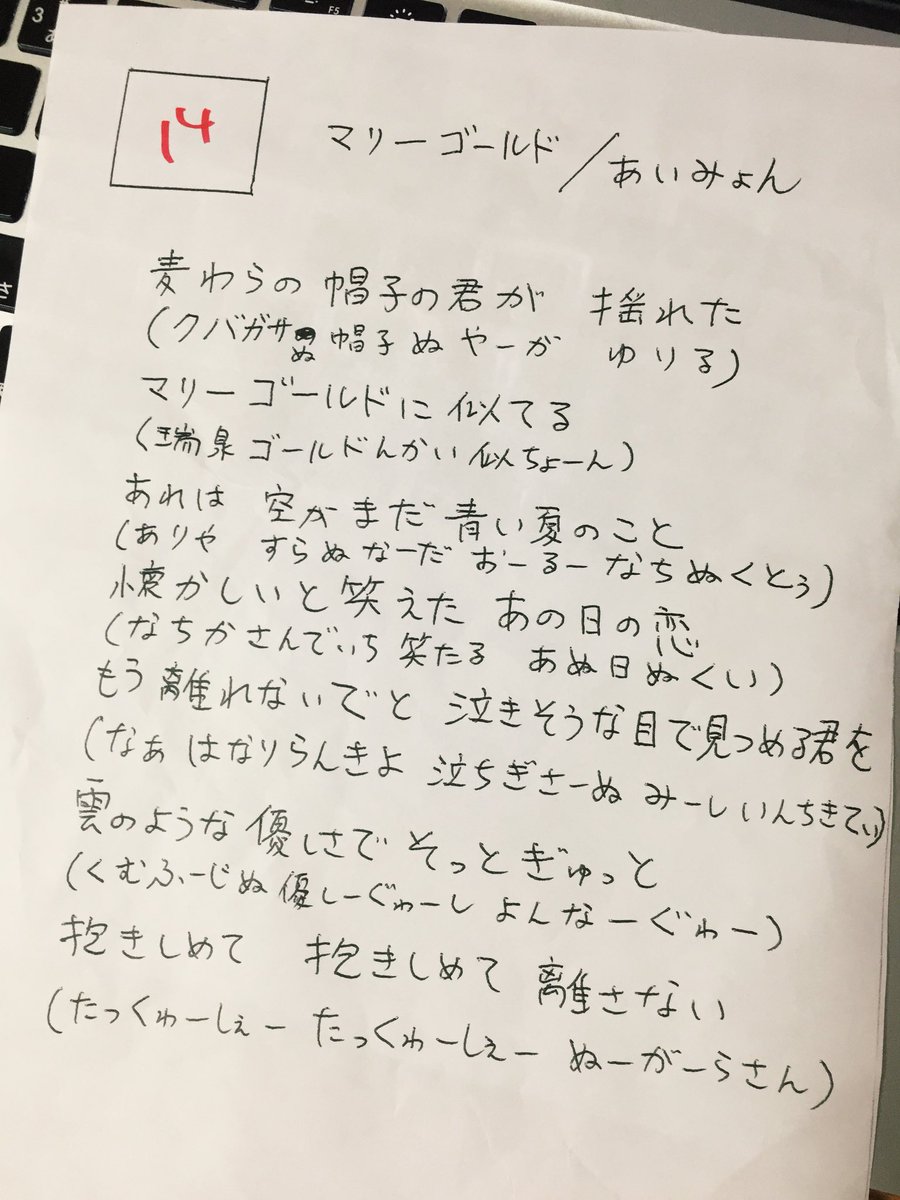 14
マリーゴールド/あいみょん
麦わらの帽子の君が 揺れた
(クバガサぬ帽子ぬやーが ゆりる)
マリーゴールドに似てる
(瑞泉ゴールドんかい似ちょーん)
あれは 空がまだ青い夏のこと
(ありや すらぬなーだ おーるーなちぬくとぅ)
懐かしいと笑えた あの日の恋
(なちかさんでぃち 笑たる あぬ日ぬくい)
もう離れないでと 泣きそうな目で見つめる君を
(なぁ はなりらんきよ 泣ちぎさーぬ みーし いんちきてぃ)
雲のような優しさで そっとぎゅっと
(くむふーじぬ優しーぐゎーし よんなーぐゎー)
抱きしめて 抱きしめて 離さない
(たっくゎーしぇー たっくゎーしぇー ぬーがーらさん)